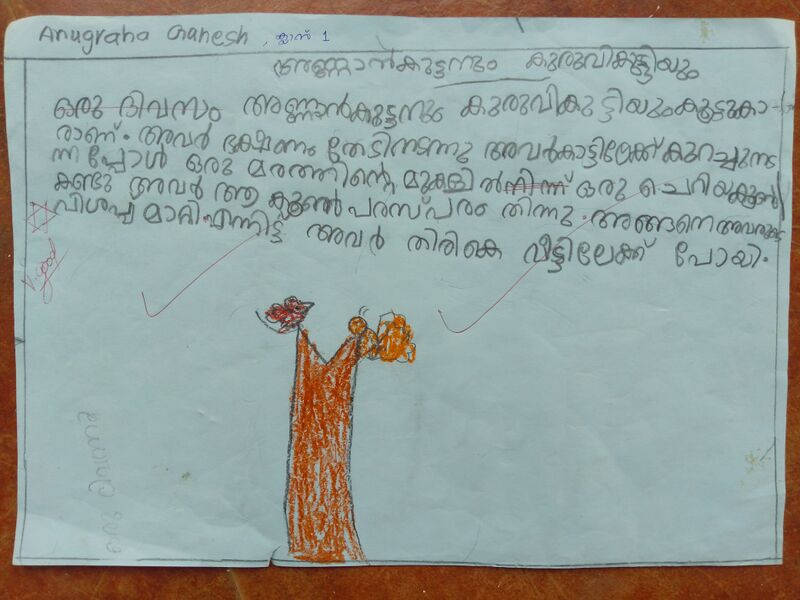 Anugraha Ganesh, ക്ലാസ് 1
അണ്ണാൻകുട്ടനും കുരുവികുട്ടിയും
ഒരു ദിവസം അണ്ണാൻകുട്ടനും കുരുവികുട്ടിയുംകൂട്ടുകാ-
രാണ്. അവർ ഭക്ഷണം തേടിനടന്നു അവർകാട്ടിലേക്ക് കുറച്ചുനട
ന്നപ്പോൾ ഒരു മരത്തിന്റെ മുകളിൽ നിന്ന് ഒരു ചെറിയകൂൺ
കണ്ടു അവർ ആ കൂൺ പരസ്പരം തിന്നു. അങ്ങനെ അവരുടെ
വിശപ്പ് മാറി എന്നിട്ട് അവർ തിരികെ വീട്ടിലേക്ക് പോയി.
V. good
ഒരു ദിവസം